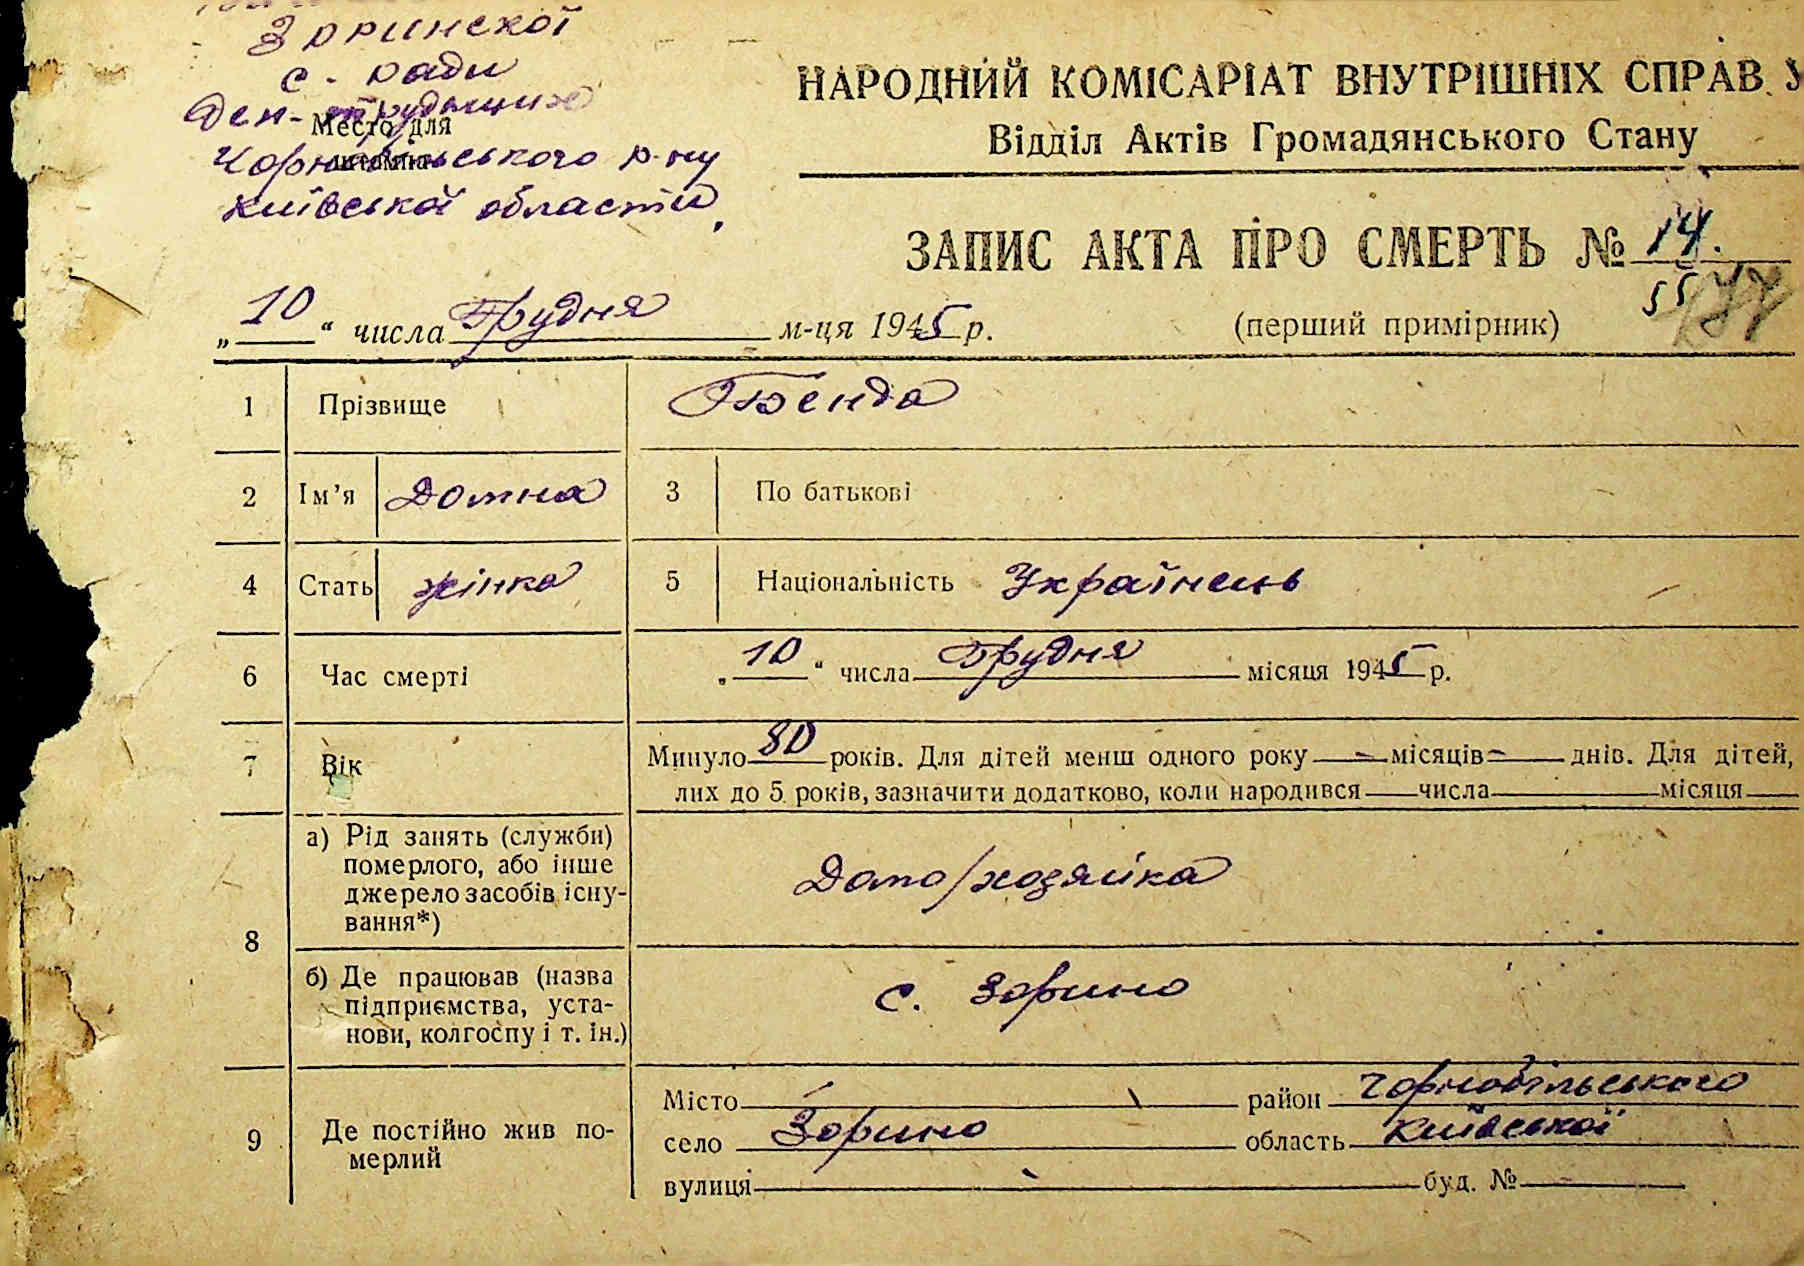 Зоринскої
с. ради
Деп. трудящих
Место для
штампа
Чорнобильського р-ну
Київської области,
НАРОДНИЙ КОМІСАРІАТ ВНУТРІШНІХ СПРАВ У
Відділ Актів Громадянського Стану
ЗАПИС АКТА ПРО СМЕРТЬ № 14.
55
„10“ числа Грудня м-ця 1945 р. (перший примірник)
1 Прізвище Бенда
2 Ім’я Домна 3 По батькові
4 Стать жінка 5 Національність Українець
6 Час смерті „10“ числа Грудня місяця 1945 р.
7 Вік Минуло 80 років. Для дітей менш одного року — місяців — днів. Для дітей,
лих до 5 років, зазначити додатково, коли народився числа місяця
8 а) Рід занять (служби)
померлого, або інше
джерело засобів існу-
вання*) Домо/хозяйка
б) Де працював (назва
підприємства, уста-
нови, колгоспу і т. ін.) с. Зорино
9 Де постійно жив по-
мерлий
Місто район Чорнобільського
село Зорино область Київської
вулиця буд. №